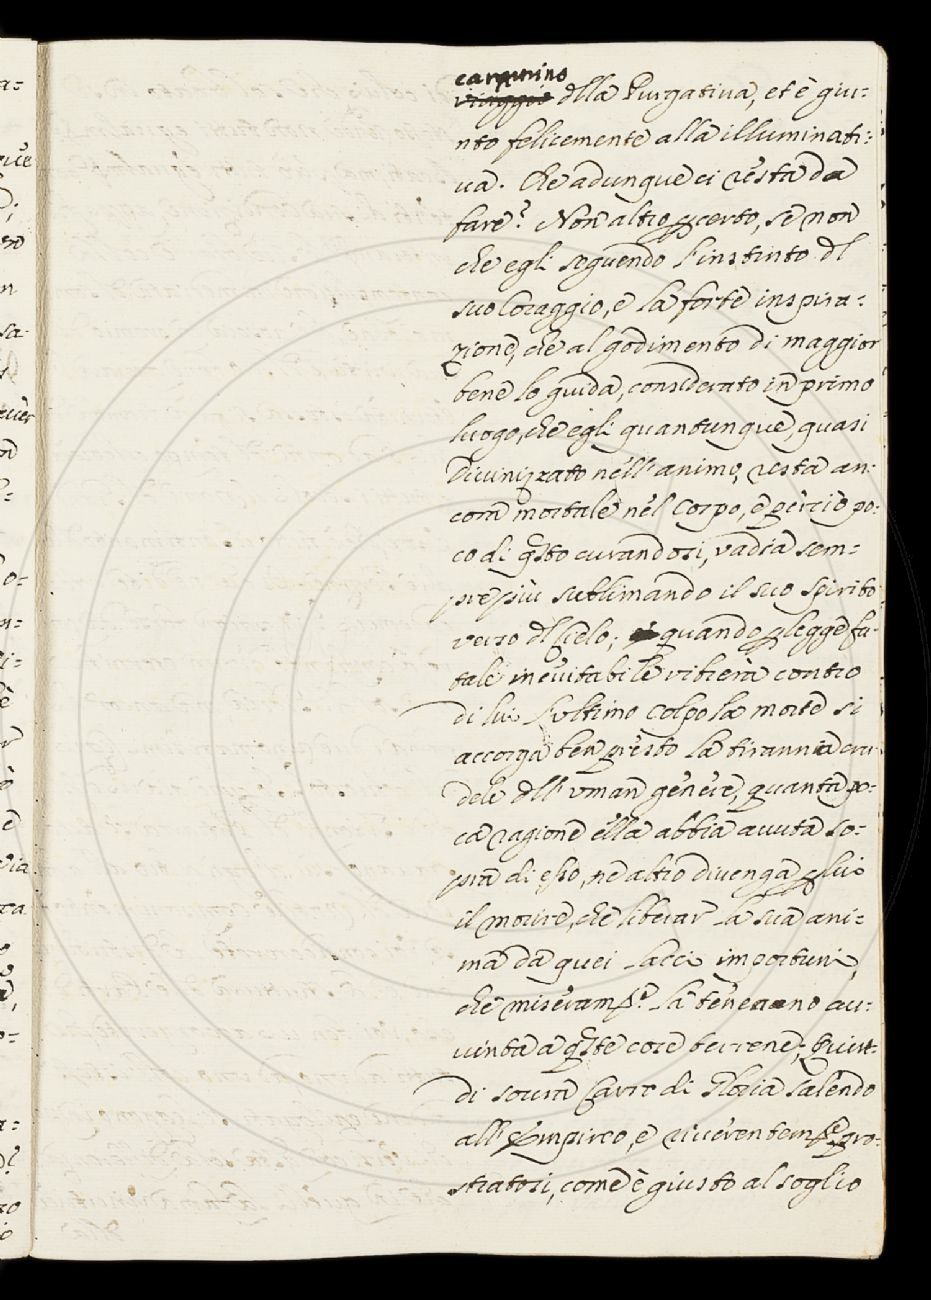 cammino
viaggio dlla Purgativa, et è giu=
nto felicemente alla illuminati=
va. Che adunque ci resta da
fare? Non altro p certo, se non
che egli seguendo l'instinto dl
suo Coraggio, e la forte inspira=
zione, che al godimento di maggior
bene lo guida, considerato in primo
luogo, che egli quantunque, quasi
Divinizzato nell'animo, resta an=
cora mortale nel Corpo, e perciò po=
co di qsto curandosi, vadia sem=
pre più sublimando il suo Spirito
verso dl Cielo; quando p legge fa=
tale inevitabile vibrerà contro
di lui l'ultimo Colpo la morte si
accorga ben presto la tiranna cru=
dele dll'uman genere, quanta po=
ca ragione ella abbia avuta so=
pra di esso, ne altro divenga p lui
il morire, che liberar la sua ani=
ma da quei lacci importuni,
che miseramte la tenevano av=
vinta a qste cose terrene; quin=
di sovra Carro di Gloria salendo
all'Empireo, e riverentemte pro=
stratosi, come è giusto al soglio